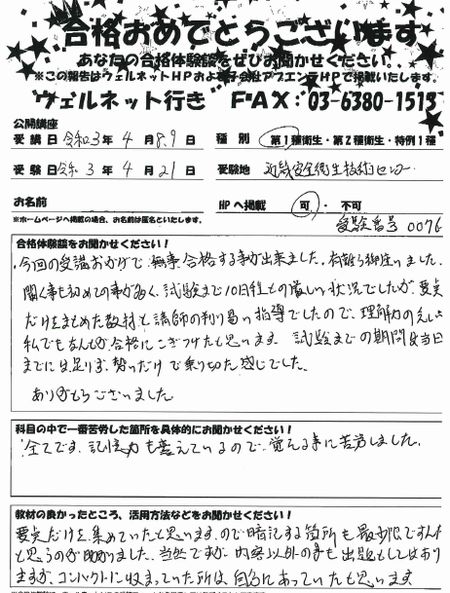 合格おめでとうございます
あなたの合格体験談をぜひお聞かせください。
※この報告はウェルネットHPおよび子会社アプエンテHPで掲載いたします。
ウェルネット行き FAX:03-6380-1515
公開講座
受講日 令和3年 4月 8.9日 種別 第1種衛生・第2種衛生・特例1種
受験日 令和 3年 4月 21日 受験地 近畿安全衛生技術センター
お名前 HPへ掲載 可・不可
※ホームページへ掲載の場合、お名前は匿名といたします。
受験番号 0076
合格体験談をお聞かせください!
今回の受講おかげで、無事合格する事が出来ました。有難う御座いました。
聞く事も初めての事が多く、試験まで10日程との厳しい状況でしたが要点
だけをまとめた教材と講師の判り易い指導でしたので、理解力のない
私でもなんとか合格にこぎつけたと思います。試験までの期間8当日
までには足りず、勢いだけで乗り切った感じでした。
ありがとうございました。
科目の中で一番苦労した箇所を具体的にお聞かせください!
全てです、記憶力も衰えているので、覚える事に苦労しました。
教材の良かったところ、活用方法などをお聞かせください!
要点だけを集めていたと思いますので暗記する箇所も最少限ですんだ
と思うのが助かりました、当然ですが、内容以外の事も出題としてはあり
ますが、コンパクトに収まっていた所は、自分にあっていたと思います